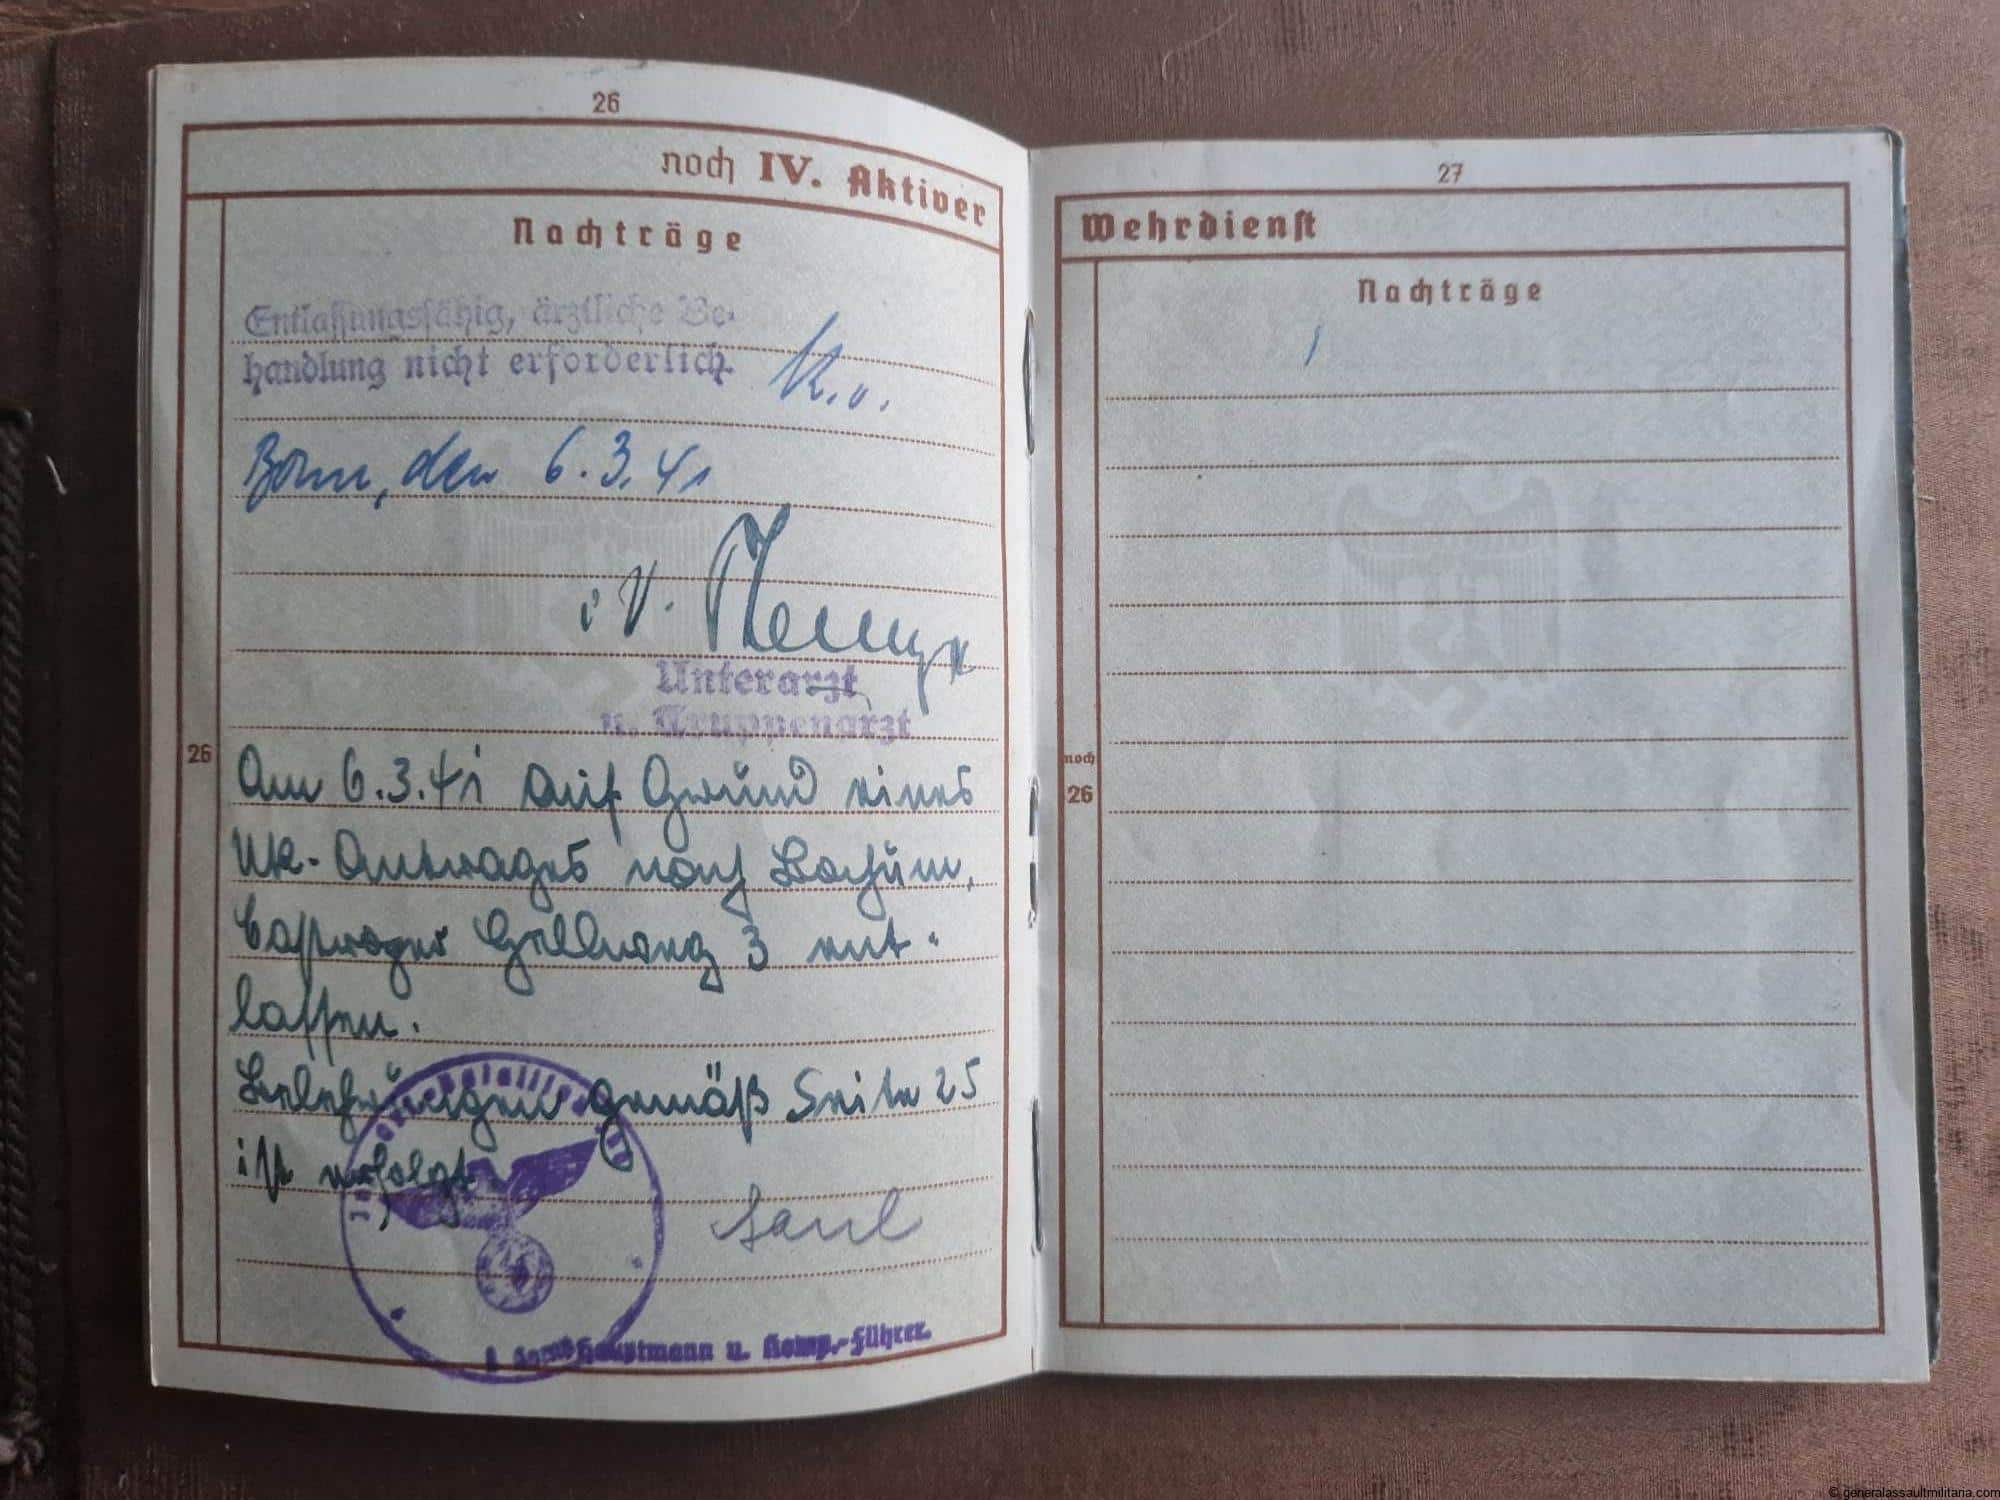 26
noch IV. Aktiver
Nachträge
Entlassungsfähig, ärztliche Be-
handlung nicht erforderlich.
K.v.
Bonn, den 6.3.41
i.V.
Unterarzt
u. Truppenarzt
26
Am 6.3.41 auf Grund eines
Uk-Antrages nach Bochum,
3 ent-
lassen.
Belehrungen gemäß Seite 25
ist erfolgt.
Hauptmann u. Komp.-Führer.
27
Wehrdienst
Nachträge
noch
26
© generalassaultmilitaria.com